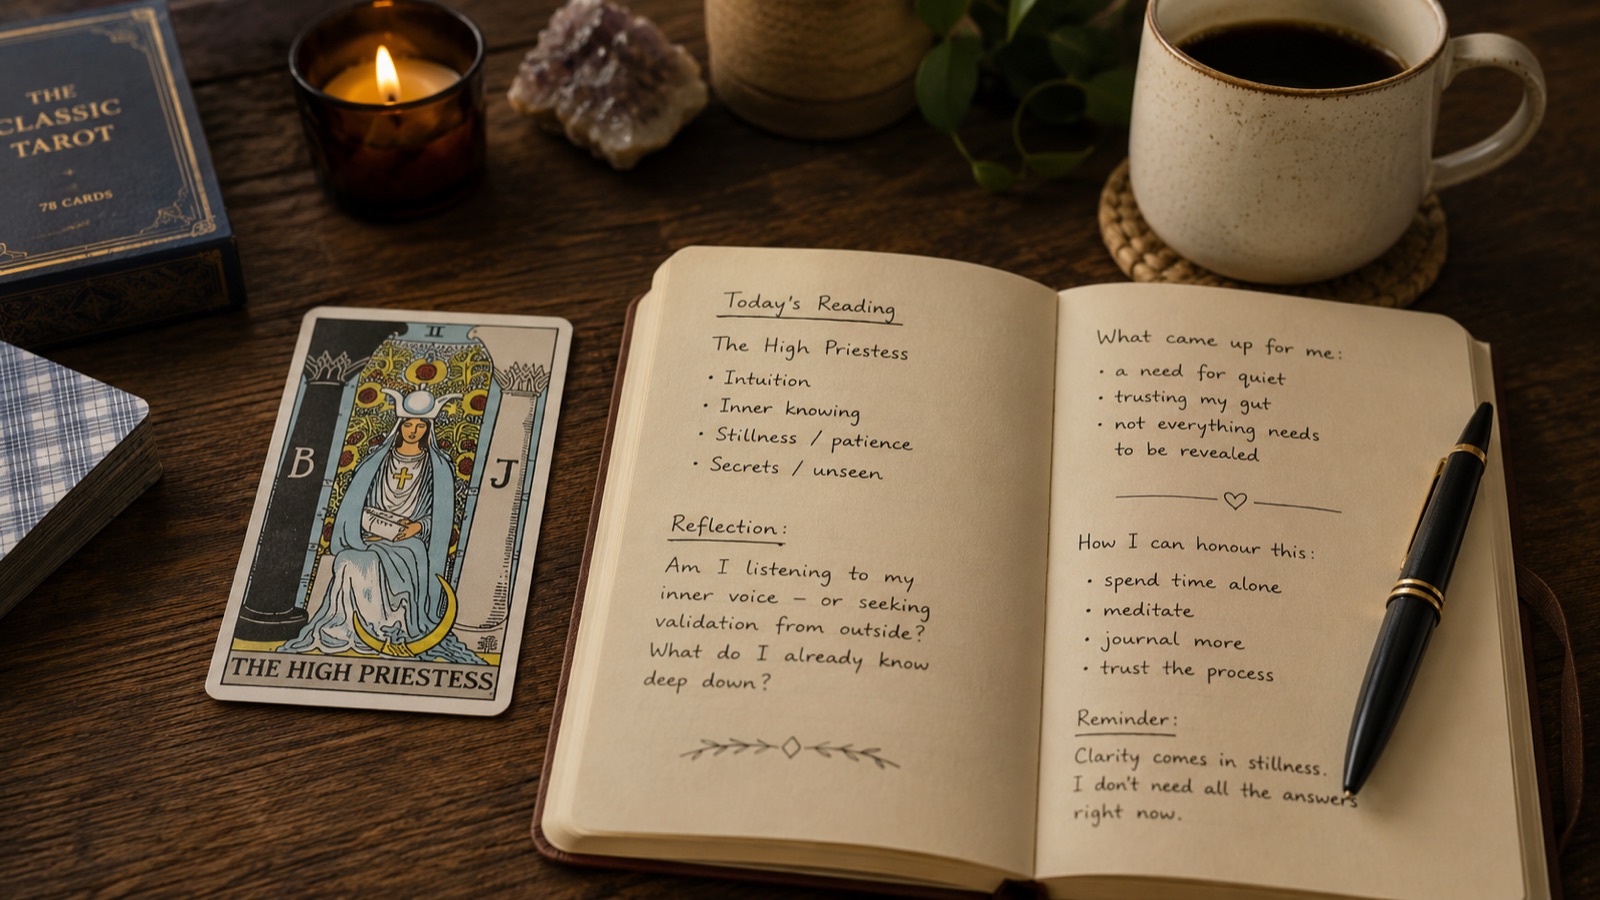 THE
CLASSIC
TAROT
78 CARDS
II
B
J
THE HIGH PRIESTESS
Today's Reading
The High Priestess
• Intuition
• Inner knowing
• Stillness / patience
• Secrets / unseen
Reflection:
Am I listening to my
inner voice – or seeking
validation from outside?
What do I already know
deep down?
What came up for me:
• a need for quiet
• trusting my gut
• not everything needs
to be revealed
How I can honour this:
• spend time alone
• meditate
• journal more
• trust the process
Reminder:
Clarity comes in stillness.
I don't need all the answers
right now.